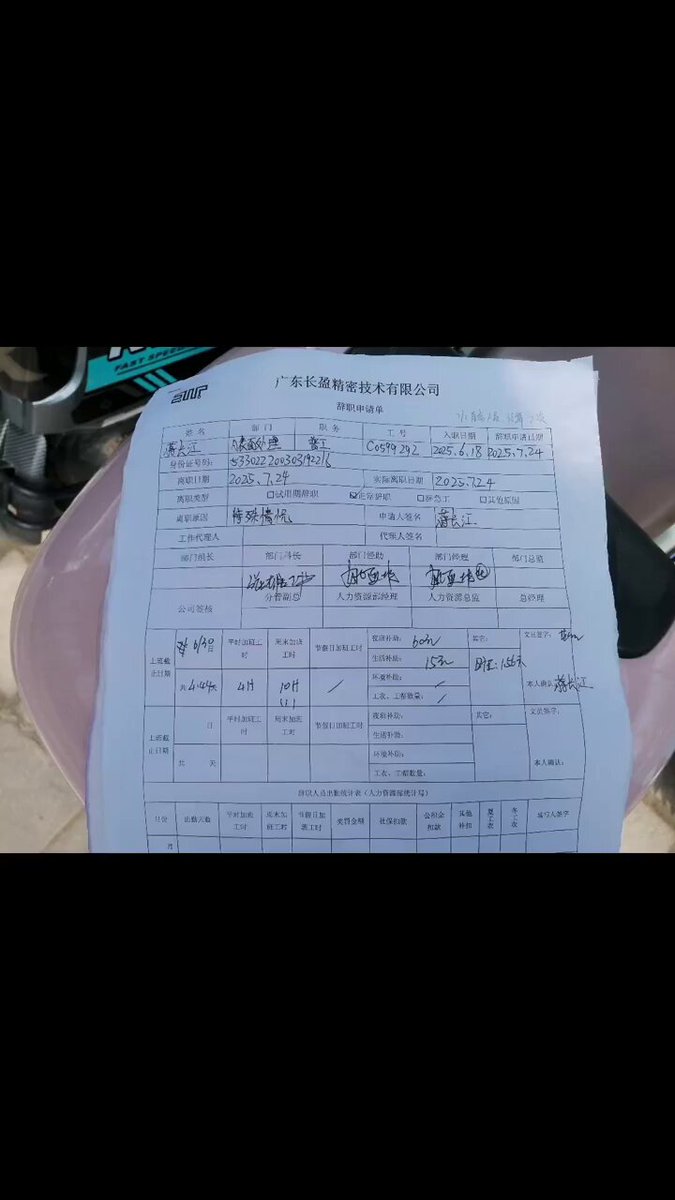 FAST SPEED
EWP
广东长盈精密技术有限公司
辞职申请单
姓名 部门 职务 工号 入职日期 辞职申请日期
蒋长江 表面处理 普工 C0599292 2025.6.18 2025.7.24
身份证号码: 533022200303192216
离职日期 2025.7.24 实际离职日期 2025.7.24
离职类型 □试用期辞职 ☑正常辞职 □辞急工 □其他原因
离职原因 特殊情况 申请人签名 蒋长江
工作代理人 代理人签名
部门组长 部门科长 部门经助 部门经理 部门总监
公司签核 分管副总 人力资源部经理 人力资源总监 总经理
上班截止日期 6/30日 平时加班工时 周末加班工时 节假日加班工时 夜班补助: 60元 其它: 文员签字:
生活补助: 15元
共4.44天 4H 10H / 环境补助: / 本人确认: 蒋长江
工衣、工帽数量: /
上班截止日期 日 平时加班工时 周末加班工时 节假日加班工时 夜班补助: 其它: 文员签字:
生活补助:
共 天 环境补助: 本人确认:
工衣、工帽数量:
辞职人员出勤统计表(人力资源部填写)
月份 出勤天数 平时加班工时 周末加班工时 节假日加班工时 奖罚金额 社保扣款 公积金扣款 其他补扣 夏工衣 冬工衣 填写人签字
月